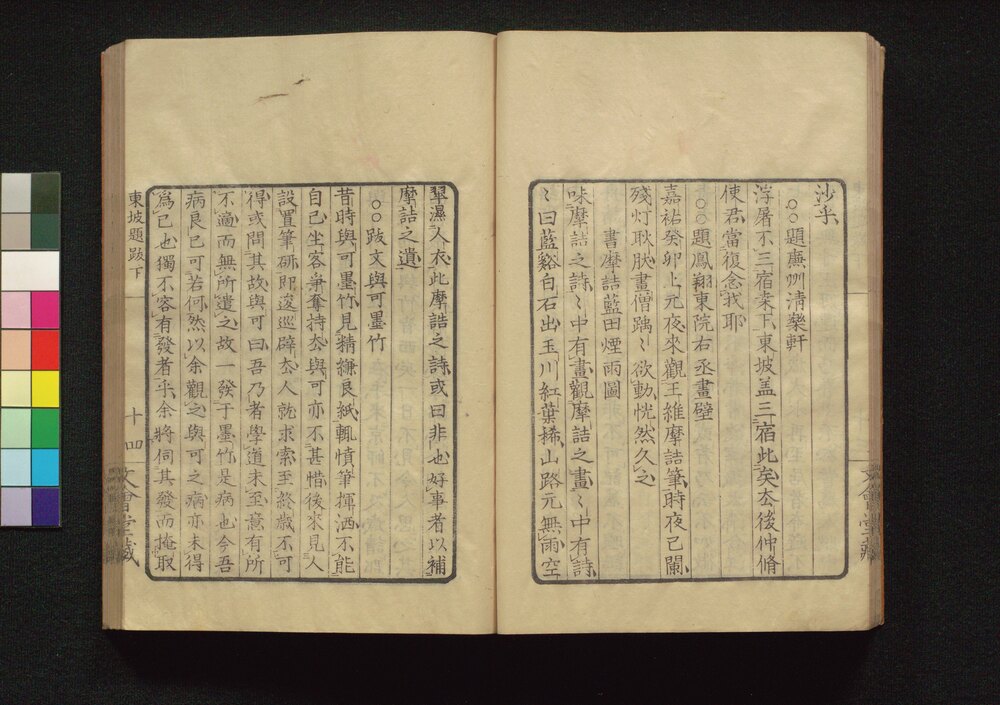 沙乎
○○題廡州清樂軒
浮屠不三宿桒下東坡盖三宿此矣厺後仲脩
使君當復念我耶
○○題鳳翔東院右丞畫壁
嘉祐癸卯上元夜來觀王維摩詰筆時夜已闌
殘灯耿肰畫僧踽〻欲動恍然久之
書摩詰藍田煙雨圖
味摩詰之詩〻中有畫觀摩詰之畫〻中有詩
〻曰藍谿白石出玉川紅葉稀山路元無雨空
翠濕人衣此摩詰之詩或曰非也好事者以補
摩詰之遺
○○跋文與可墨竹
昔時與可墨竹見精縑良紙輒憤筆揮洒不能
自已坐客爭奪持厺與可亦不甚惜後來見人
設置筆研即逡巡辟厺人就求索至終歲不可
得或問其故與可曰吾乃者學道未至意有所
不適而無所遣之故一發于墨竹是病也今吾
病良已可若何然以余觀之與可之病亦未得
爲已也獨不容有發者乎余將伺其發而掩取
東坡題跋下
十四
文會堂藏